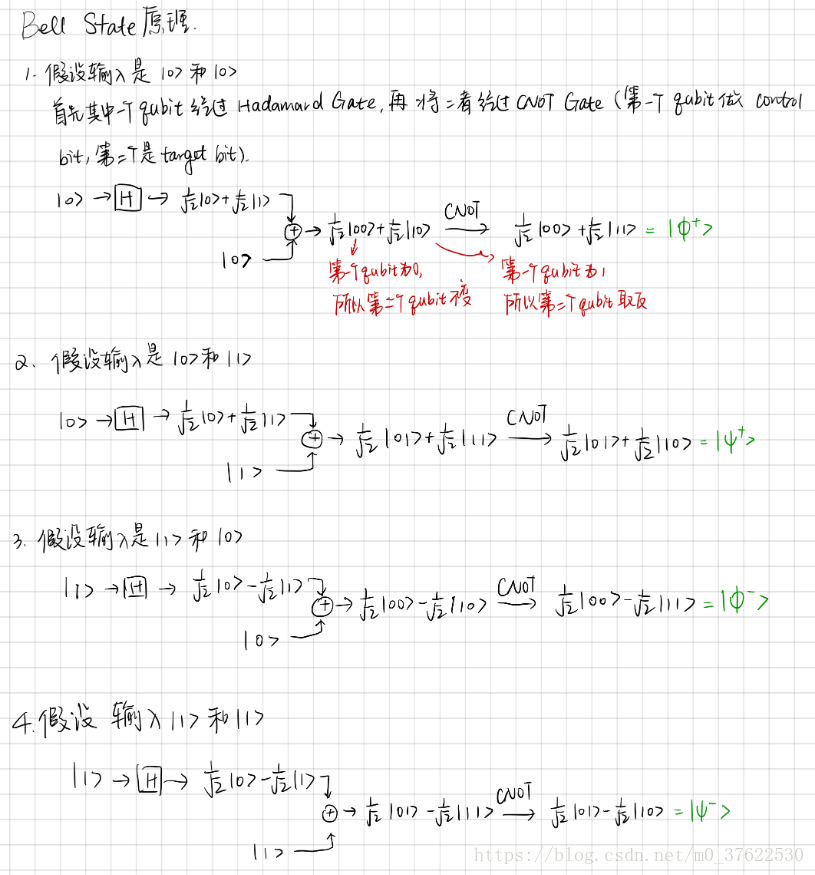 Bell State 原理.
1. 假设输入是 |0> 和 |0>
首先其中一个qubit 经过 Hadamard Gate, 再将二者经过 CNOT Gate (第一个qubit 做 control
bit, 第二个是 target bit).
|0> → H → 1/√2|0>+1/√2|1>
|0> ⊕ → 1/√2|00>+1/√2|10> CNOT → 1/√2|00>+1/√2|11> = |Φ⁺>
第一个qubit为0, 第一个qubit为1,
所以第二个qubit不变 所以第二个qubit取反
2. 假设输入是 |0> 和 |1>
|0> → H → 1/√2|0>+1/√2|1>
|1> ⊕ → 1/√2|01>+1/√2|11> CNOT → 1/√2|01>+1/√2|10> = |ψ⁺>
3. 假设输入是 |1> 和 |0>
|1> → H → 1/√2|0>-1/√2|1>
|0> ⊕ → 1/√2|00>-1/√2|10> CNOT → 1/√2|00>-1/√2|11> = |Φ⁻>
4. 假设 输入 |1> 和 |1>
|1> → H → 1/√2|0>-1/√2|1>
|1> ⊕ → 1/√2|01>-1/√2|11> CNOT → 1/√2|01>-1/√2|10> = |ψ⁻>
https://blog.csdn.net/m0_37622530